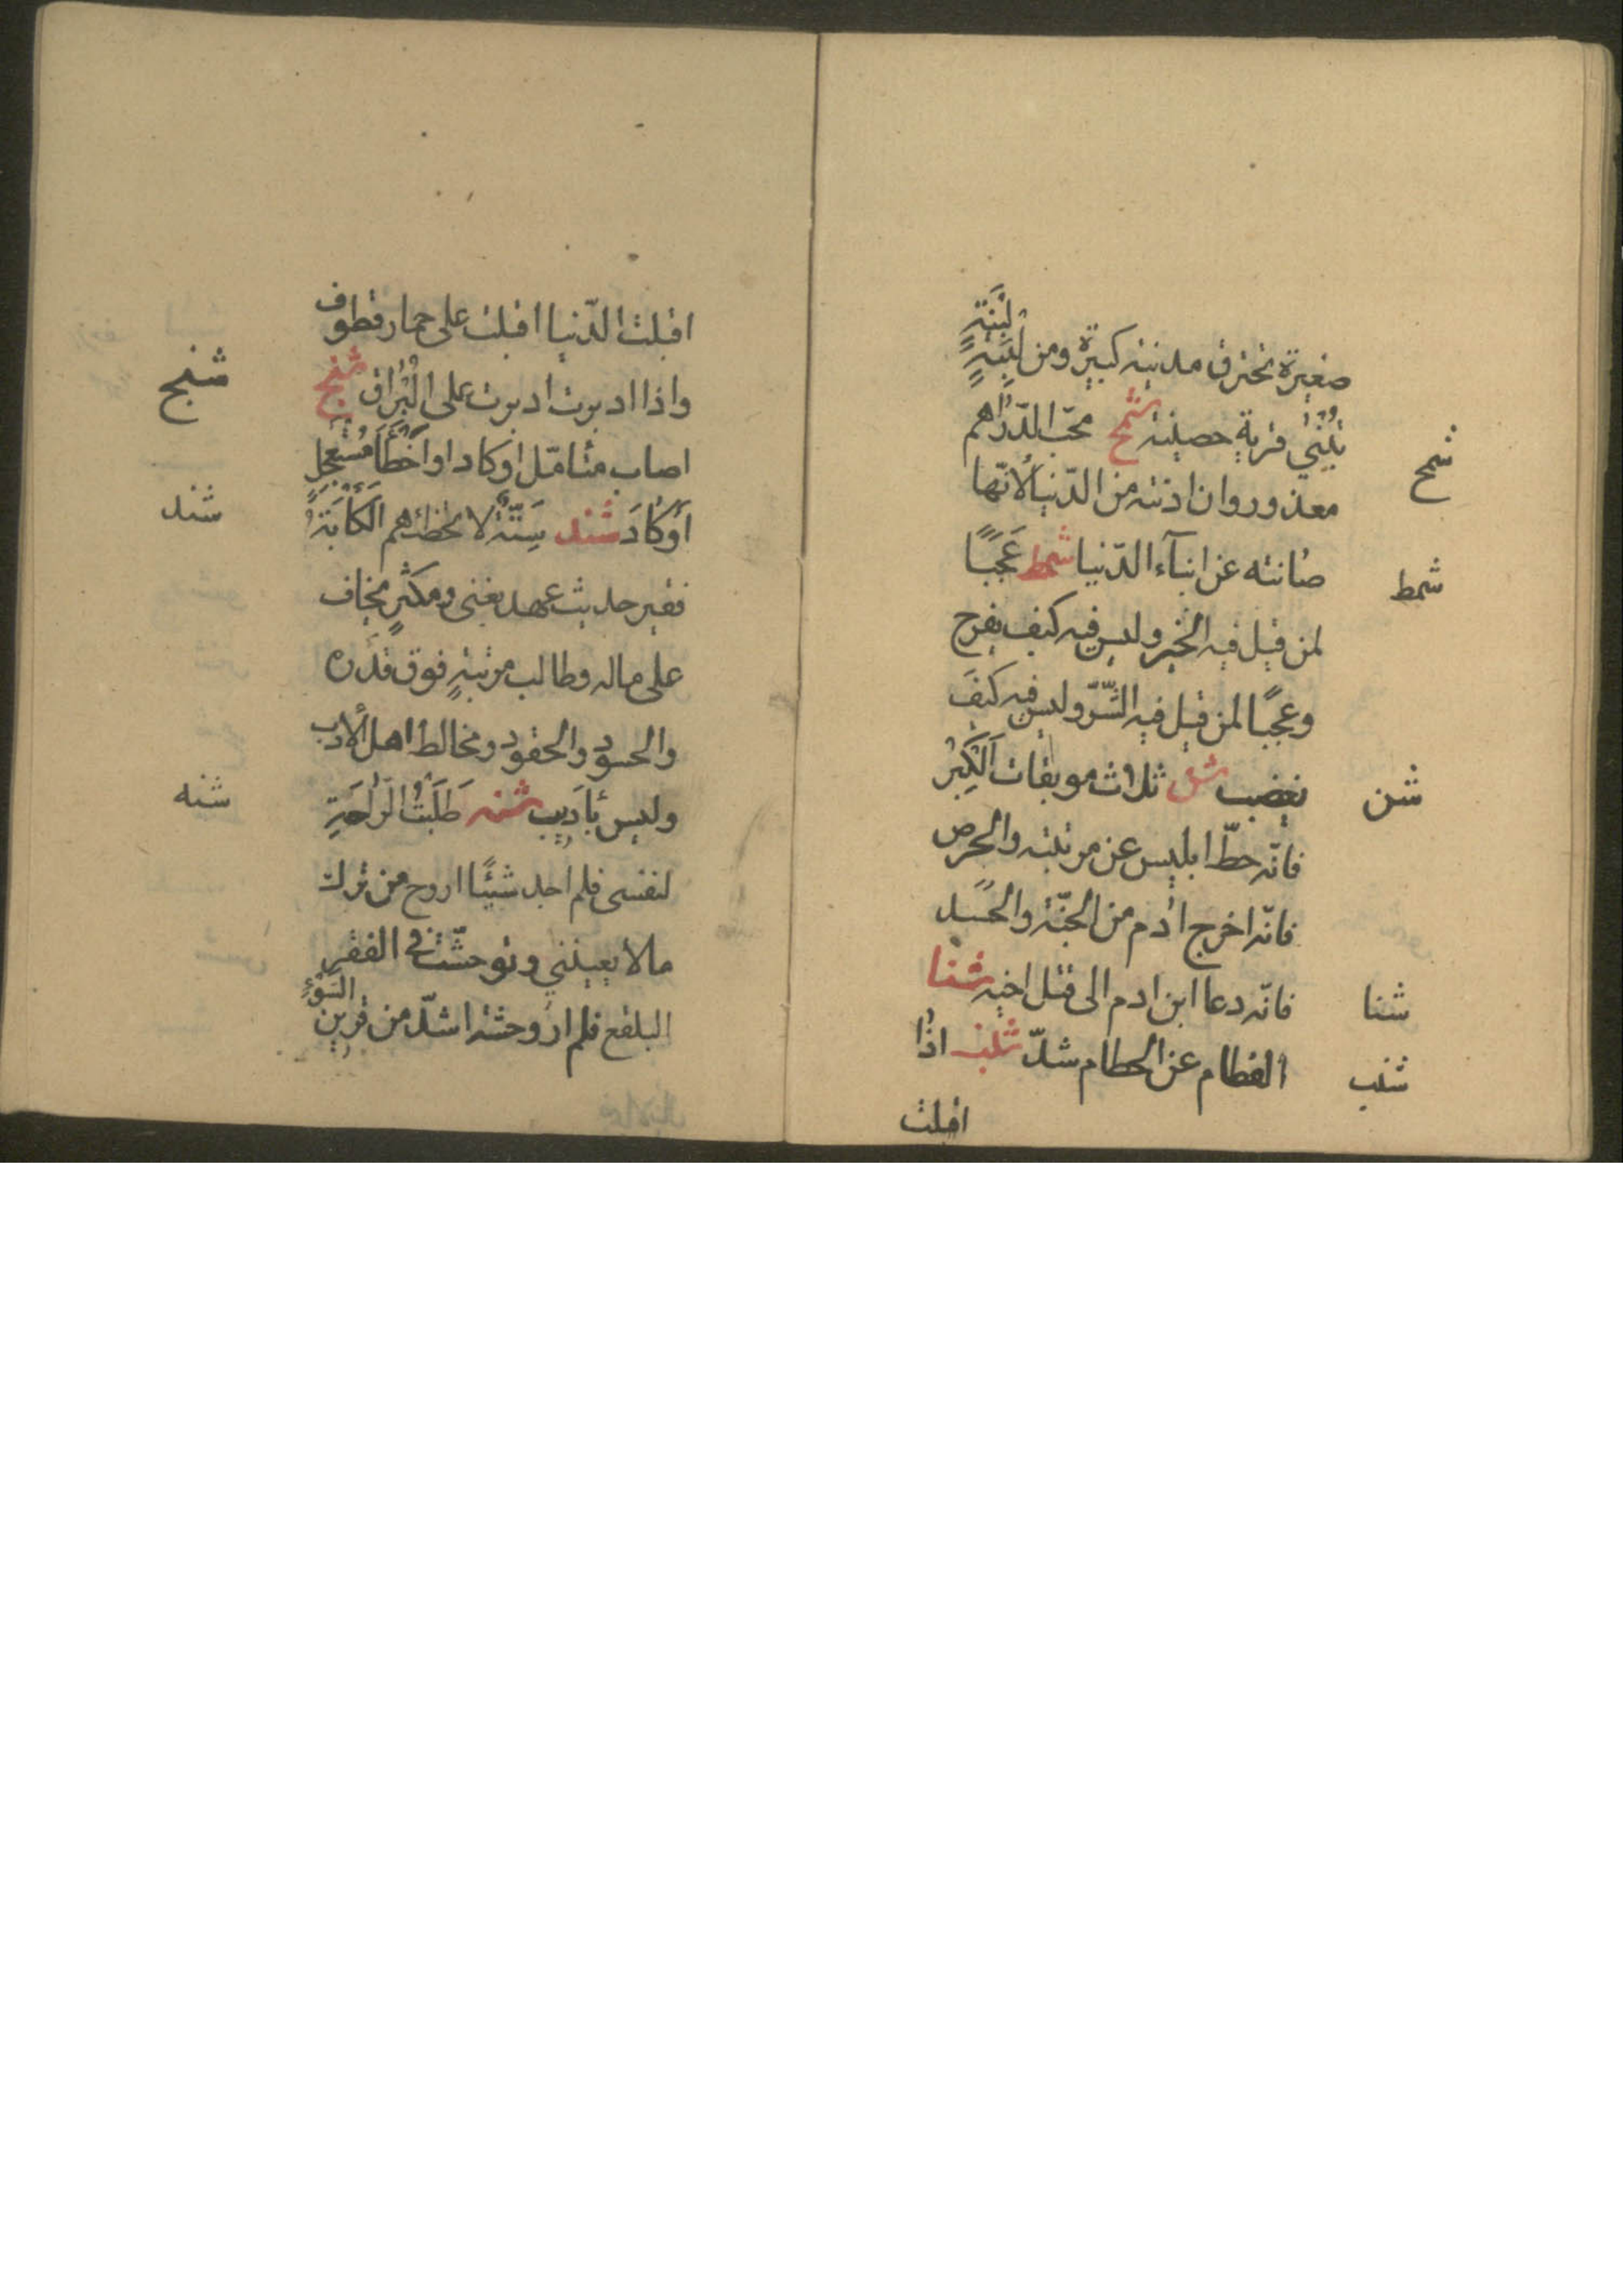 لَبِنَةٍ
صغيرة تحترق مدينة كبيرة ومن لَبِنَةٍ
تُبْنىٰ قرية حصينة شمح محبّ الدّراهم
شمح
معذور وان ادنته من الدّنيا لانّها
صانته عن ابنآء الدّنيا شمط عَجَبًا
شمط
لمن قيل فيه الخير وليس فيه كيف يفرح
وعجبًا لمن قيل فيه الشّرّ وليس فيه كيفَ
يغضب شن ثلاث موبقات اَلْكِبْرُ
شن
فانّه حطّ ابليس عن مرتبته والحرص
فانّه اخرج اٰدم من الجنّة والحسد
فانّه دعا ابن ادم الى قتل اخيه شنا
شنا
الفطام عن الحطام شدّ شنب اذا
شنب
اقبلت
اقبلت الدّنيا اقبلت على حمار قطوف
واذا ادبرت ادبرت على الْبُراق شنج
شنج
اصاب متامّل اوكاد او اَخْطَأَ مُسْتَعْجِل
أَوْكَادَ شند سِتَّةٌ لا تخطئهم الكَأٰبَةُ
شند
فقير حديث عهد بغنى ومكثرٍ يخاف
على ماله وطالب مرتبةٍ فوق قدره
والحسود والحقود ومخالط اهل الأدب
وليس بأديب شنه طَلَبْتُ الرّاحَةِ
شنه
لنفسى فلم اجد شيئًا اروح من ترك
مالا يعينني وتوحّشت فى القفر
البلقع فلم ار وحشة اشدّ من قرين
السَّوْءِ